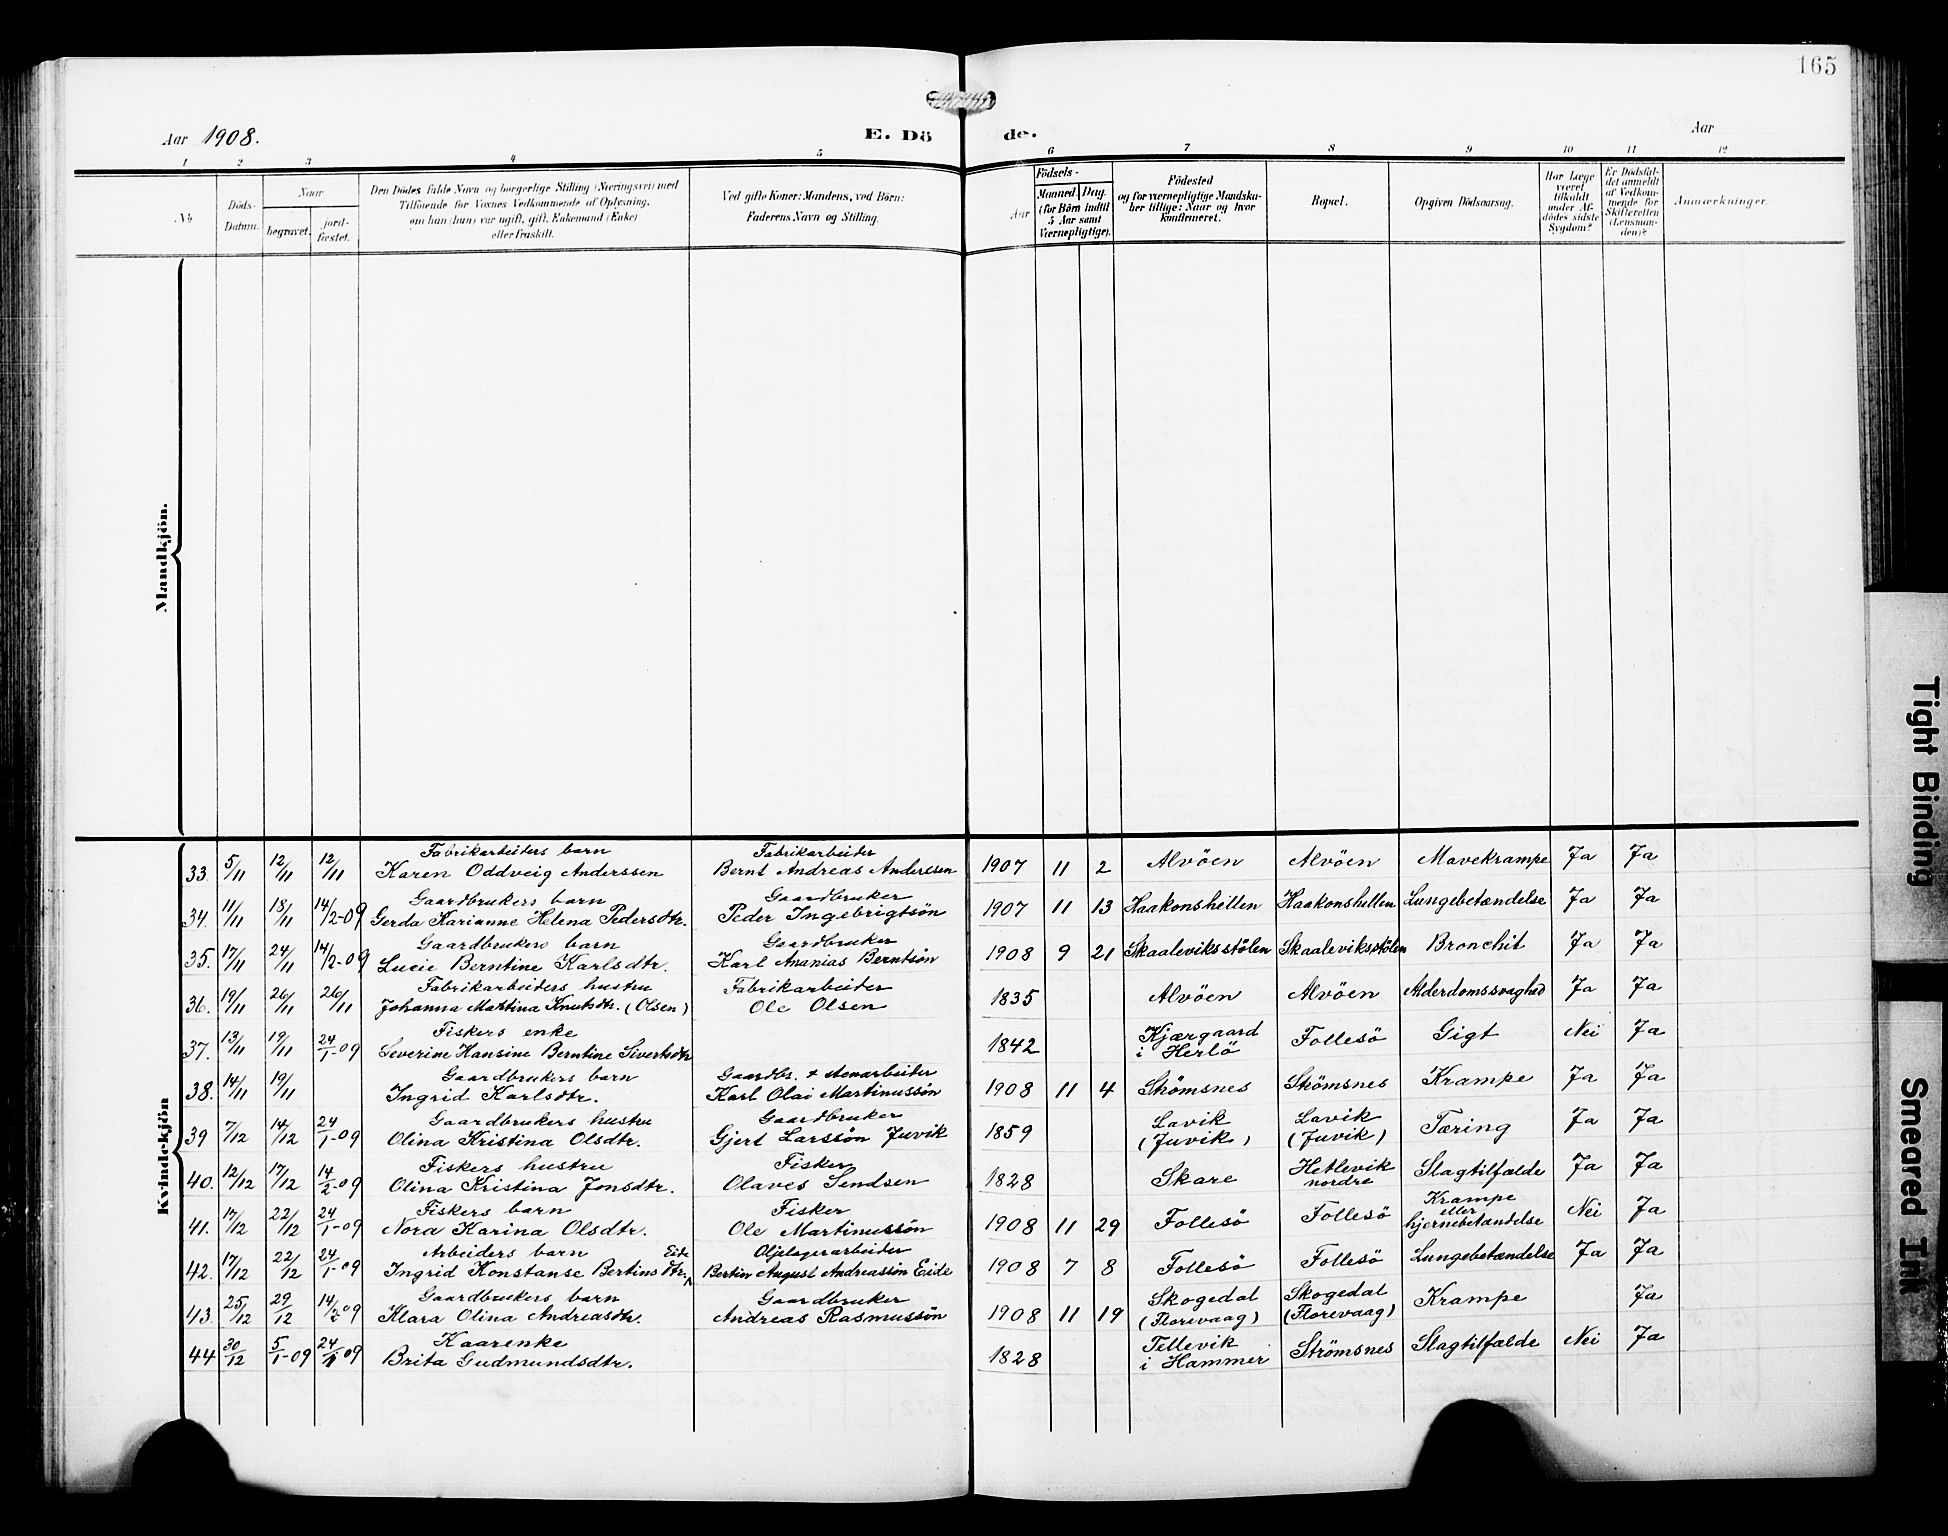 165
Aar 1908.
E. Dö de.
Aar
1 2 3 4 5 6 7 8 9 10 11 12
No.
Döds-Datum.
Naar
begravet.
jord-fæstet.
Den Dödes fulde Navn og borgerlige Stilling (Næringsvei) med
Tilföiende for Voxnes Vedkommende af Oplysning,
om han (hun) var ugift, gift, Enkemand (Enke)
eller fraskilt.
Ved gifte Koner: Mandens, ved Börn:
Faderens Navn og Stilling.
Födsels-
Aar
Maaned. Dag.
(for Börn indtil
5 Aar samt
Værnepligtige).
Födested
og for værnepligtige Mandska-
ber tillige: Naar og hvor
konfirmeret.
Bopæl.
Opgiven Dödsaarsag.
Har Læge
været
tilkaldt
under Af-
dödes sidste
Sygdom?
Er Dödsfal-
det anmeldt
af Vedkom-
mende for
Skifteretten
(Lensman-
den)?
Anmærkninger.
Mandkjön.
Kvindekjön
Fabrikarbeiders barn Fabrikarbeider
33. 5/11 12/11 12/11 Karen Oddveig Anderssen Bernt Andreas Anderssen 1907 11 2 Alvöen Alvöen Mavekrampe Ja Ja
Gaardbrukers barn Gaardbruker
34. 11/11 18/11 14/2-09 Gerda Karianne Helena Pedersdtr. Peder Ingebrigtsön 1907 11 13 Haakonshellen Haakonshellen Lungebetændelse Ja Ja
Gaardbrukers barn Gaardbruker
35. 17/11 24/11 14/2-09 Lucie Berntine Karlsdtr. Karl Ananias Berntsön 1908 9 21 Skaaleviksstölen Skaaleviksstölen Bronchit Ja Ja
Fabrikarbeiders hustru Fabrikarbeider
36. 19/11 26/11 26/11 Johanna Martina Knutsdtr. (Olsen) Ole Olsen 1835 Alvöen Alvöen Alderdomssvaghed Ja Ja
Fiskers enke
37. 13/11 19/11 24/1-09 Severine Hansine Berntine Sivertsdtr 1842 Kjærgaard i Herlö Follesö Gigt Nei Ja
Gaardbrukers barn Gaardbr. + stenarbeider
38. 14/11 19/11 Ingrid Karlsdtr. Karl Olai Martinussön 1908 11 4 Skömsnes Skömsnes Krampe Ja Ja
Gaardbrukers hustru Gaardbruker
39 7/12 14/12 24/1-09 Olina Kristina Olsdtr. Gjert Larssön Juvik 1859 Lavik (Juvik) Lavik (Juvik) Tæring Ja Ja
Fiskers hustru Fisker
40. 12/12 17/12 14/2-09 Olina Kristina Jonsdtr. Olaves Sendsen 1828 Skare Hetlevik nordre Slagtilfælde Ja Ja
Fiskers barn Fisker
41. 17/12 22/12 24/1-09 Nora Karina Olsdtr. Ole Martinussön 1908 11 29 Follesö Follesö Krampe eller hjernebetændelse Nei Ja
Arbeiders barn Eide Oljelagerarbeider
42. 17/12 22/12 24/1-09 Ingrid Konstanse Bertinsdtr. Bertin August Andreassön Eide 1908 7 8 Follesö Follesö Lungebetændelse Ja Ja
Gaardbrukers barn Gaardbruker
43. 25/12 29/12 14/2 09 Klara Olina Andreasdtr. Andreas Rasmussön 1908 11 19 Skogedal (Florevaag) Skogedal (Florevaag) Krampe Ja
Kaarenke
44 30/12 5/1-09 24/1 09 Brita Gudmundsdtr. 1828 Tellevik i Hammer Strömsnes Slagtilfælde Nei Ja
Tight Binding
Smeared Ink